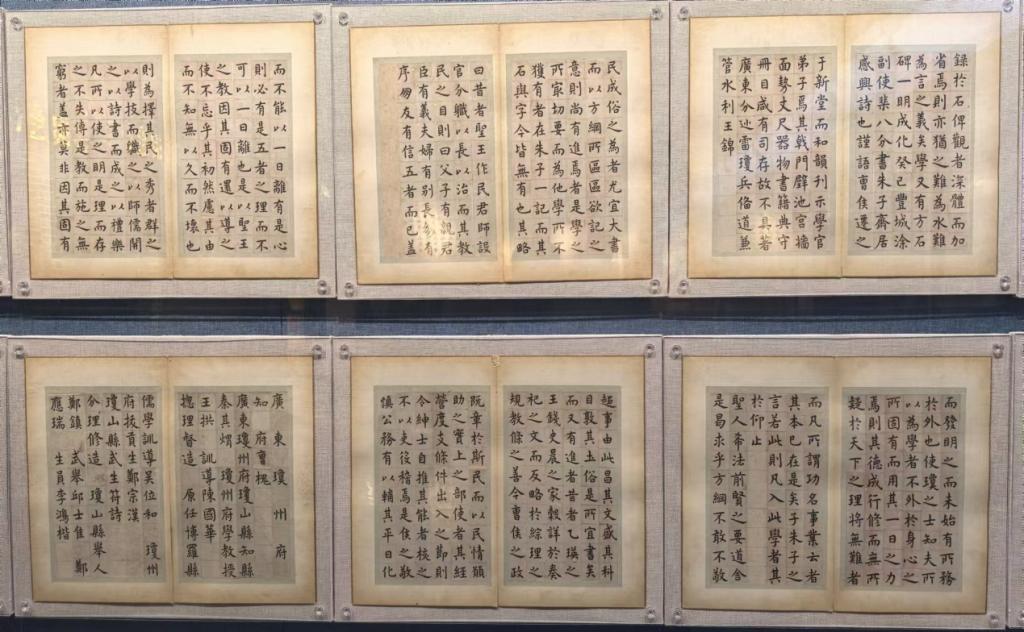 錄於石俾觀者深體而加
省焉則亦猶之難為水難
為言之義矣學又有方石
碑一明成化癸巳豐城涂
副使棐八分書朱子齋居
感興詩也謹語曹侯遷之
于新堂而和韻刊示學官
弟子焉其戟門辟池宮牆
面勢丈尺器物書籍典守
冊目咸有司存故不具著
廣東分巡雷瓊兵備道兼
管水利王錦
民成俗之為者尤宜大書
而以方綱所區區欲記之
意則尚有進焉者是學之
所家切要而為他學所不
獲有者在朱子一記而其
石與字今皆無有也其略
曰昔者聖王作民君師設
官分職以長以治而其教
民之目則曰父子有親君
臣有義夫婦有別長幼有
序朋友有信五者而已蓋
而不能以一日離有是心
則必有是五者之理而不
可以一日離也是以聖王
之教因其固有還以導之
使不忘乎其初然慮其由
而不知無以久而不壞也
則為擇其民之秀者群之
以學技而之以師儒開
之以詩書而成之以禮樂
凡所以使之明是理而存
之不失傳是教而施之無
窮者蓋亦莫非因其固有
而發明之而未始有所務
於外也使瓊之士知夫所
以為學者不外於身心之
所固有而用其一日之力
焉則其德成行修而無所
疑於天下之理將無難者
而凡所謂功名事業云者
其本已在是矣子朱子之
言若此則凡入此學者其
於仰止
聖人希法前賢之要道舍
是曷求乎方綱不敢不敬
趍事由此昌其文盛其科
目敦其土俗是所宜書矣
而又有進者昔者乙瑛之
王錢史晨之家穀詳於奏
祀之文而反略於綜理之
規教條之善今曹侯之政
既章於斯民而以民情願
助之實上之部使者其經
營度支條件出入之節則
令紳士自推其能者核之
不以吏役稽焉是侯之敬
慎公務有以輔其平日化
廣東瓊州府
知府曹槐
廣東瓊州府瓊山縣知縣
秦其 瓊州府學教授
王拱 訓導陳國華
摠理督造 原任博羅縣
儒學訓導吳位和 瓊州
府拔貢生鄭宗漢
瓊山縣武生符詩
分理修造 瓊山縣舉人
鄭鎮 武舉邱士佳 鄭
應瑞 生員李鴻楷